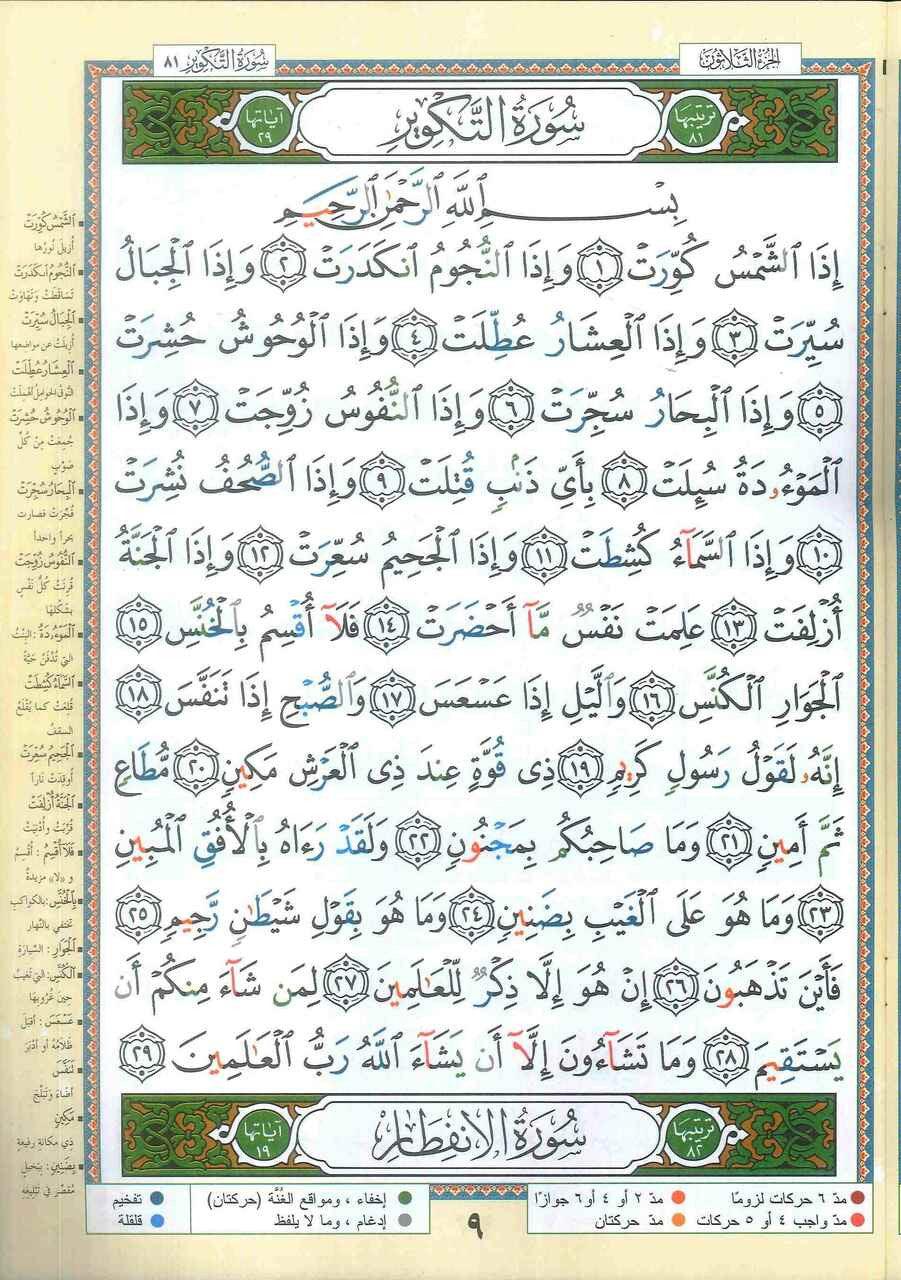 الجزء الثلاثون
سورة التكوير ٨١
ترتيبها ٨١
سُورَةُ التَّكْوِيرِ
آياتها ٢٩
بِسْمِ ٱللَّهِ ٱلرَّحْمَٰنِ ٱلرَّحِيمِ
إِذَا ٱلشَّمْسُ كُوِّرَتْ ١ وَإِذَا ٱلنُّجُومُ ٱنكَدَرَتْ ٢ وَإِذَا ٱلْجِبَالُ
سُيِّرَتْ ٣ وَإِذَا ٱلْعِشَارُ عُطِّلَتْ ٤ وَإِذَا ٱلْوُحُوشُ حُشِرَتْ
٥ وَإِذَا ٱلْبِحَارُ سُجِّرَتْ ٦ وَإِذَا ٱلنُّفُوسُ زُوِّجَتْ ٧ وَإِذَا
ٱلْمَوْءُۥدَةُ سُئِلَتْ ٨ بِأَىِّ ذَنۢبٍ قُتِلَتْ ٩ وَإِذَا ٱلصُّحُفُ نُشِرَتْ
١٠ وَإِذَا ٱلسَّمَآءُ كُشِطَتْ ١١ وَإِذَا ٱلْجَحِيمُ سُعِّرَتْ ١٢ وَإِذَا ٱلْجَنَّةُ
أُزْلِفَتْ ١٣ عَلِمَتْ نَفْسٌ مَّآ أَحْضَرَتْ ١٤ فَلَآ أُقْسِمُ بِٱلْخُنَّسِ ١٥
ٱلْجَوَارِ ٱلْكُنَّسِ ١٦ وَٱلَّيْلِ إِذَا عَسْعَسَ ١٧ وَٱلصُّبْحِ إِذَا تَنَفَّسَ ١٨
إِنَّهُۥ لَقَوْلُ رَسُولٍ كَرِيمٍ ١٩ ذِى قُوَّةٍ عِندَ ذِى ٱلْعَرْشِ مَكِينٍ ٢٠ مُّطَاعٍ
ثَمَّ أَمِينٍ ٢١ وَمَا صَاحِبُكُم بِمَجْنُونٍ ٢٢ وَلَقَدْ رَءَاهُ بِٱلْأُفُقِ ٱلْمُبِينِ
٢٣ وَمَا هُوَ عَلَى ٱلْغَيْبِ بِضَنِينٍ ٢٤ وَمَا هُوَ بِقَوْلِ شَيْطَٰنٍ رَّجِيمٍ ٢٥
فَأَيْنَ تَذْهَبُونَ ٢٦ إِنْ هُوَ إِلَّا ذِكْرٌ لِّلْعَٰلَمِينَ ٢٧ لِمَن شَآءَ مِنكُمْ أَن
يَسْتَقِيمَ ٢٨ وَمَا تَشَآءُونَ إِلَّآ أَن يَشَآءَ ٱللَّهُ رَبُّ ٱلْعَٰلَمِينَ ٢٩
ترتيبها ٨٢
سُورَةُ الِانْفِطَارِ
آياتها ١٩
الشَّمْسُ كُوِّرَتْ
أُزِيلَ نُورُهَا
النُّجُومُ انكَدَرَتْ
تَسَاقَطَتْ وَتَهَاوَتْ
الْجِبَالُ سُيِّرَتْ
أُزِيلَتْ عن مواضعها
الْعِشَارُ عُطِّلَتْ
النُّوقُ الحواملُ أُهْمِلَتْ
الْوُحُوشُ حُشِرَتْ
جُمِعَتْ مِنْ كُلِّ
صَوْبٍ
الْبِحَارُ سُجِّرَتْ
فُجِّرَتْ فصارت
بحراً واحداً
النُّفُوسُ زُوِّجَتْ
قُرِنَتْ كُلُّ نَفْسٍ
بشكلها
الْمَوْءُودَةُ : البنتُ
التي تُدْفَنُ حَيَّةً
السَّمَاءُ كُشِطَتْ
قُلِعَتْ كما يُقْلَعُ
السقفُ
الْجَحِيمُ سُعِّرَتْ
أُوقِدَتْ نَاراً
الْجَنَّةُ أُزْلِفَتْ
قُرِّبَتْ وأُدْنِيَتْ
فَلَا أُقْسِمُ : أُقْسِمُ
و «لا» مزيدةٌ
بِالْخُنَّسِ : بالكواكبِ
تختفي بالنَّهار
الْجَوَارِ : السيارة
الْكُنَّسِ : التي تَغِيبُ
حِينَ غُرُوبِهَا
عَسْعَسَ : أَقْبَلَ
ظَلامُهُ أو أَدْبَرَ
تَنَفَّسَ
أَضَاءَ وَتَبَلَّجَ
مَكِينٍ
ذي مكانةٍ رفيعةٍ
بِضَنِينٍ : ببخيلٍ
مُقَصِّرٍ في تَبْلِيغِهِ
مدّ ٦ حركات لزومًا
مدّ ٢ أو ٤ أو ٦ جوازًا
إخفاء ، ومواقع الغُنَّة (حركتان)
تفخيم
مدّ واجب ٤ أو ٥ حركات
مدّ حركتان
إدغام ، وما لا يلفظ
قلقلة
٩